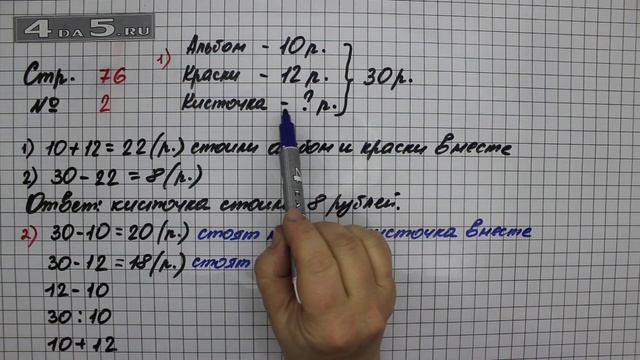 4 да 5.RU
1) Альбом - 10 р.
Стр. 76 Краски - 12 р. 30 р.
№ 2 Кисточка - ? р.
1) 10 + 12 = 22 (р.) стоили альбом и краски вместе
2) 30 - 22 = 8 (р.)
Ответ: кисточка 8 рублей.
2) 30 - 10 = 20 (р.) стоят вместе
30 - 12 = 18 (р.) стоят
12 - 10
30 : 10
10 + 12